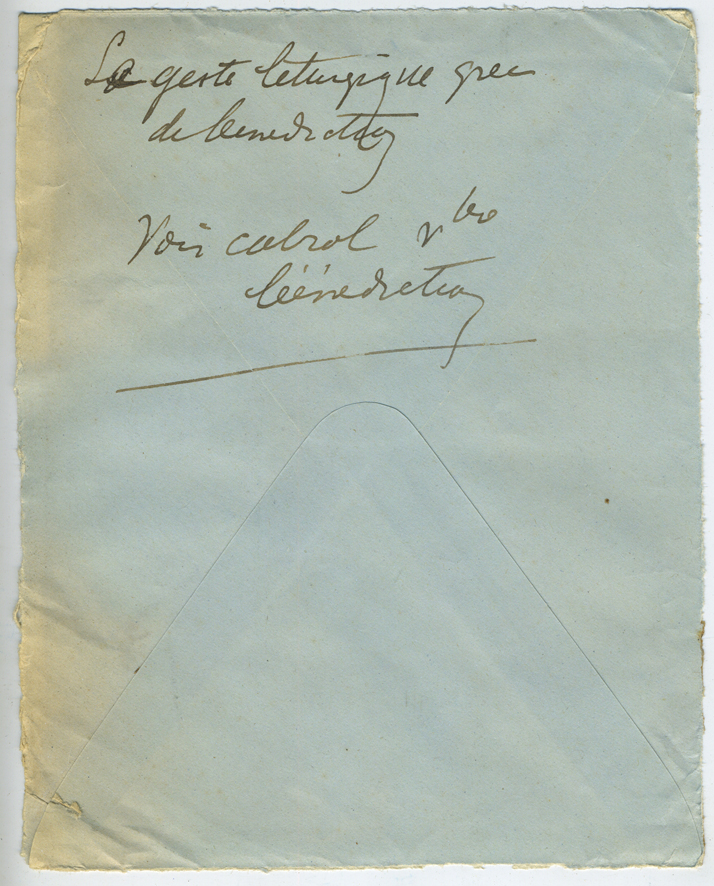 Le geste liturgique grec
de bénédiction
Voir cabrol v<sup>bo</sup>
bénédiction